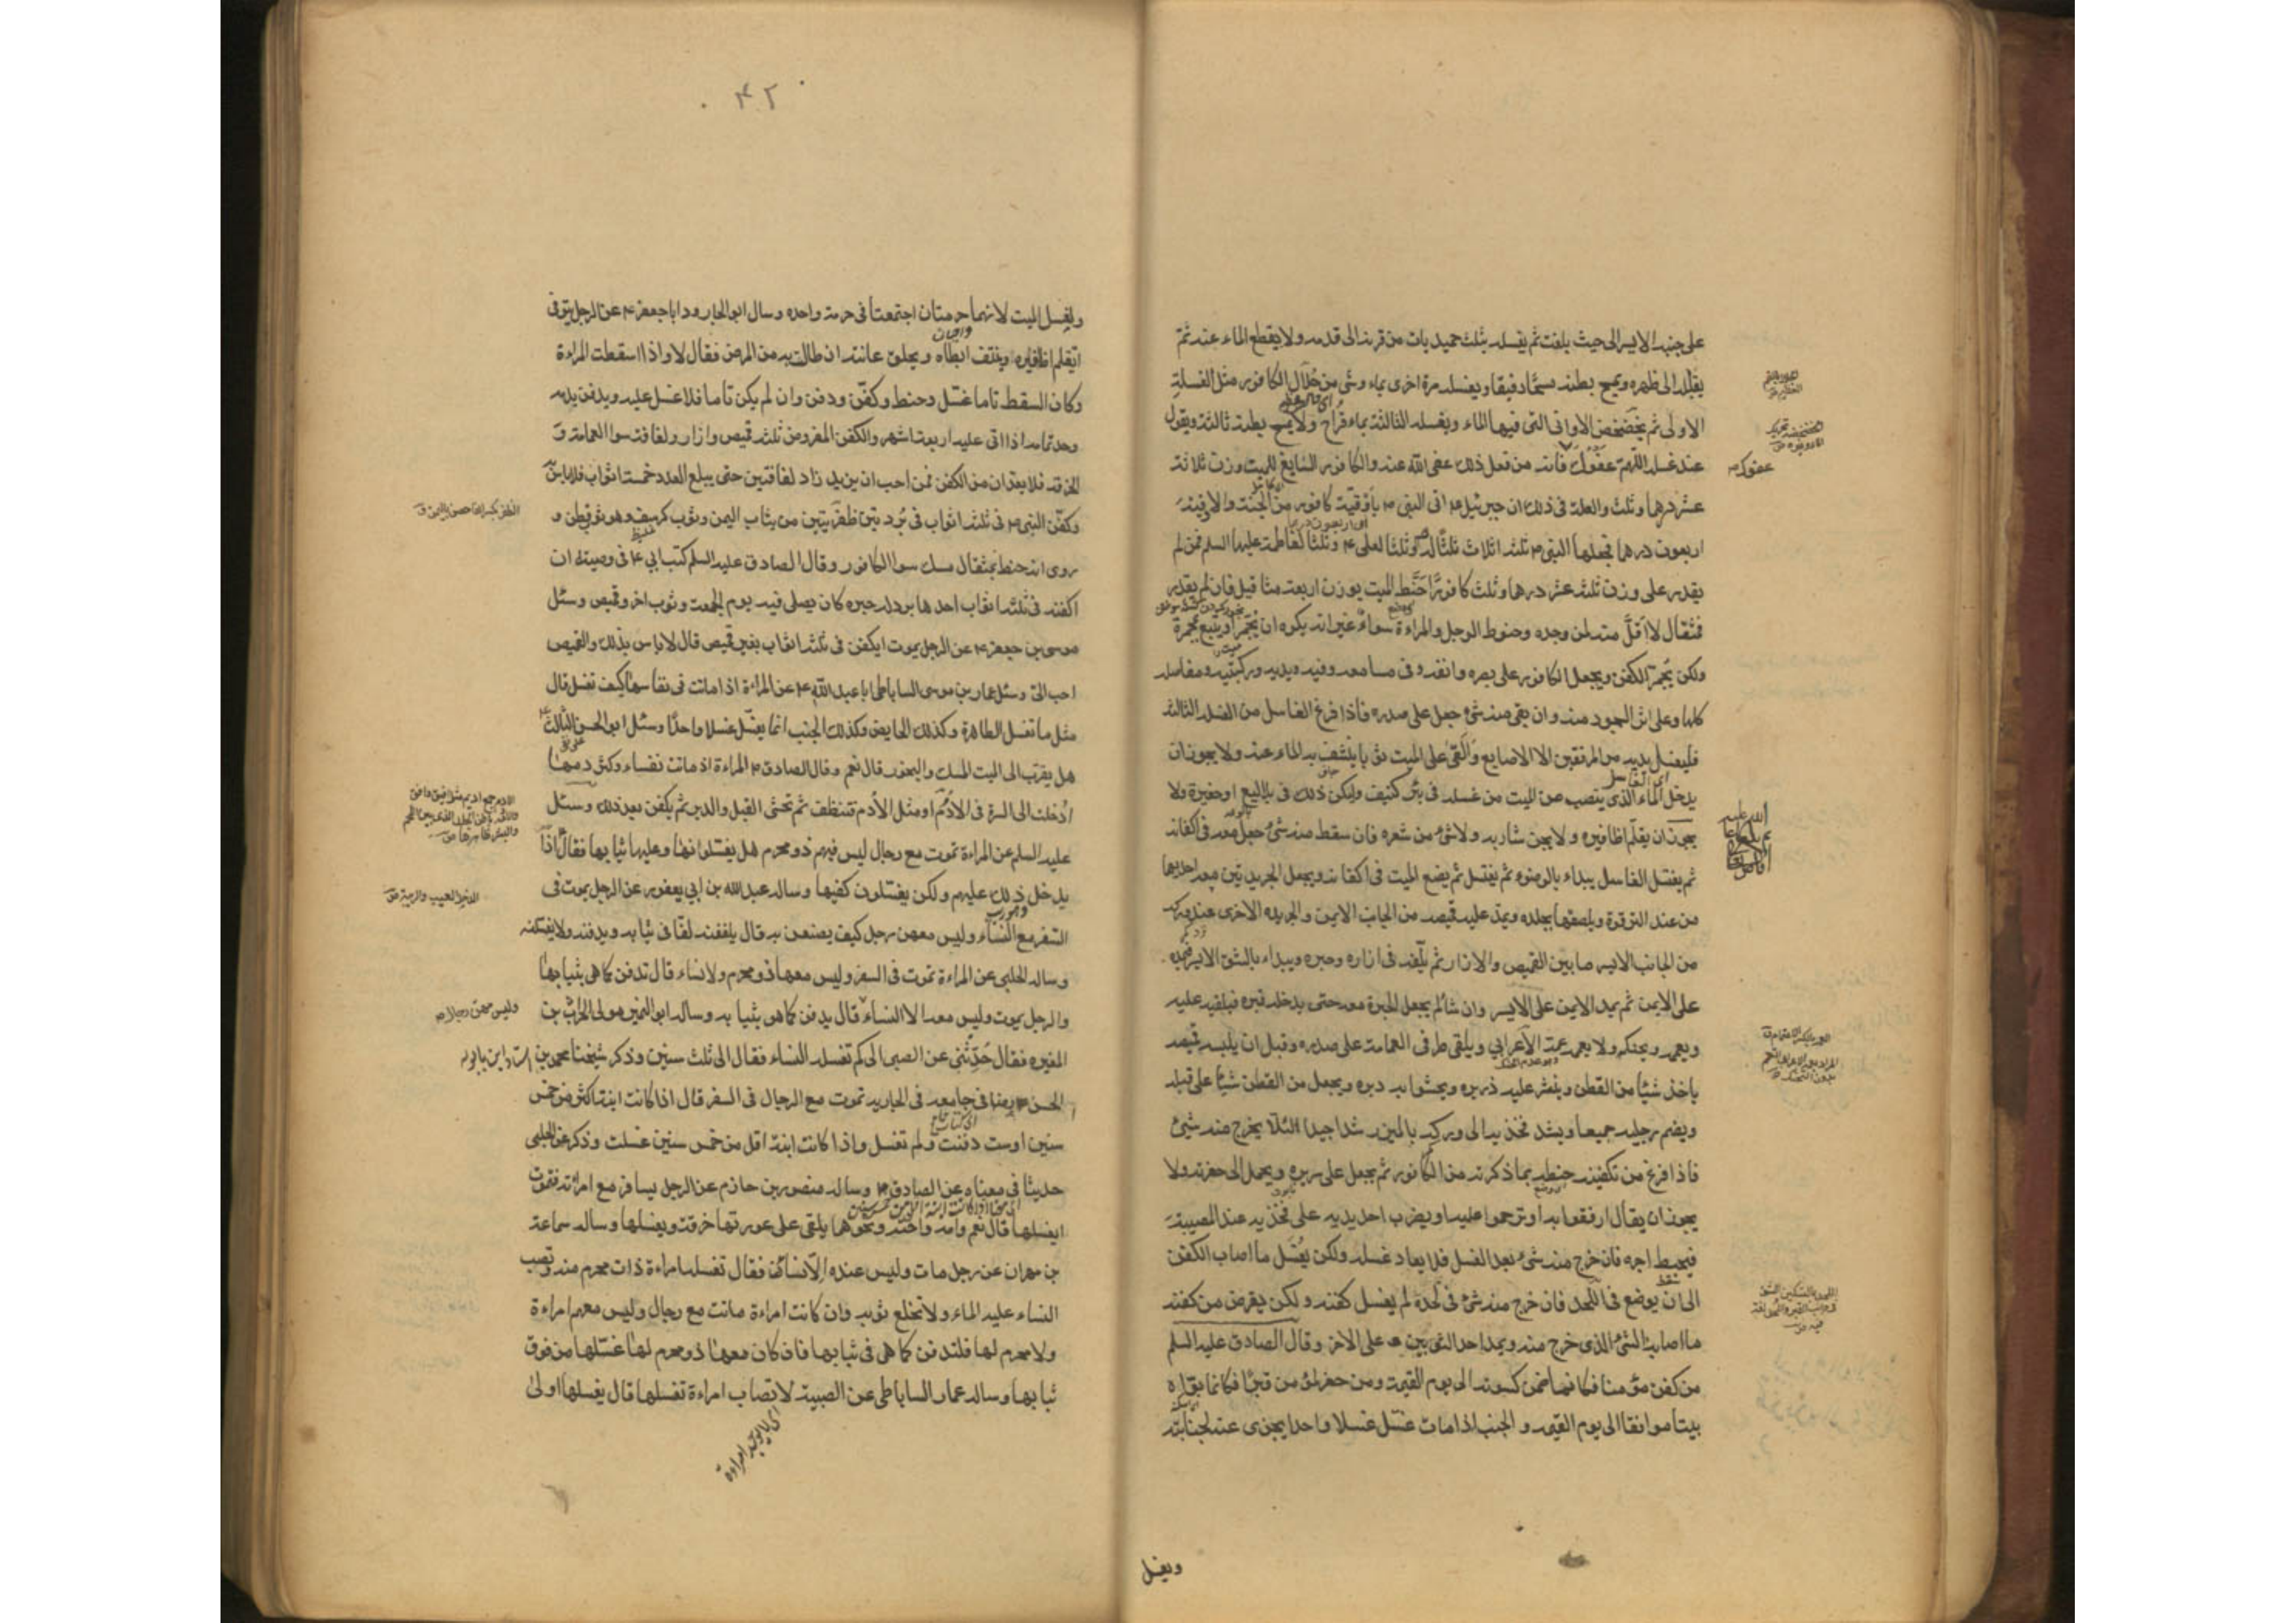 على جنبه الايسر الى حيث بلغت ثم يغسله بثلث حميديات من قرنه الى قدمه ولا يقطع الماء عنه ثم
يقلبه الى ظهره ويمسح بطنه مسحا رفيقا ويغسله مرة اخرى بماء وشئ من جلال الكافور مثل الغسلة
الاولى ثم يخضخض الاوانى التى فيها الماء ويغسله الثالثة بماء قراح ولا يمسح بطنه ثالثة ويقول
عند غسله اللهم عفوك عفوك فانه من فعل ذلك عفى الله عنه والكافور السايغ للميت وزن ثلاثة
عشر درهما وثلث والعلة فى ذلك ان جبرئيل ع اتى النبى ص بأوقية كافور من الجنة والاوقية
اربعون درهما فجعلها النبى ص ثلثة اثلاث ثلثا له وثلثا لعلى ع وثلثا لفاطمة عليها السلم فمن لم
يقدر على وزن ثلثة عشر درهما وثلث كافورا حنط الميت بوزن اربعة مثاقيل فان لم يقدر
فمثقال لا اقل منه لمن وجده وحنوط الرجل والمراءة سواء غير انه يكره ان يجمر او يتبع بمجمرة
ولكن يجمر الكفن ويجعل الكافور على بصره وانفه وفى مسامعه وفيه ويديه وركبتيه ومفاصله
كلها وعلى اثر السجود منه وان بقى منه شئ جعل على صدره فاذا فرغ الغاسل من الغسله الثالثة
فليغسل يديه من المرفقين الا الاصابع والقى على الميت ثوبا ينشف به الماء عنه ولا يجوز ان
يدخل الماء الذى ينصب عن الميت من غسله فى بئر كنيف وليكن ذلك فى بلاليع او حفيرة ولا
يجوز ان يقلم اظافيره ولا يجز شاربه ولا شئ من شعره فان سقط منه شئ جعل معه فى اكفانه
ثم يغتسل الغاسل يبداء بالوضوء ثم يغتسل ثم يضع الميت فى اكفانه ويجعل الجريدتين معه احديهما
من عند الترقوة ويلصقها بجلده ويمد عليه قميصه من الجانب الايمن والجريده الاخرى عند وركه
من الجانب الايسر ما بين القميص والازار ثم يلفه فى ازاره وحبره ويبداء بالشق الايسر فيمده
على الايمن ثم يمد الايمن على الايسر وان شاء لم يجعل الحبرة معه حتى يدخله قبره فيلقيه عليه
ويعممه ويحنكه ولا يعممه عمة الاعرابي ويلقى طرفى العمامة على صدره وقبل ان يلبسه قميصه
ياخذ شيئا من القطن وينثر عليه ذريره ويحشوا به دبره ويجعل من القطن شيئا على قبله
ويضم رجليه جميعا ويشد فخذيه الى وركيه بالميزر شدا جيدا لئلا يخرج منه شئ
فاذا فرغ من تكفينه حنطه بما ذكرته من الكافور ثم يجعل على سريره ويحمل الى حفرته ولا
يجوز ان يقال ارفقوا به او ترحموا عليه او يضرب احد يديه على فخذيه عند المصيبة
فيحبط اجره فان خرج منه شئ بعد الغسل فلا يعاد غسله ولكن يغسل ما اصاب الكفن
الى ان يوضع فى اللحد فان خرج منه شئ فى لحده لم يغسل كفنه ولكن يقرض من كفنه
ما اصابه الشئ الذى خرج منه ويمد احد الثوبين على الاخر وقال الصادق عليه السلم
من كفن مؤمنا فكانما ضمن كسوته الى يوم القيمة ومن حفر لمؤمن قبرا فكانما بواه
بيتا موافقا الى يوم القيمه و الجنب اذا مات غسل غسلا واحدا يجزى عنه لجنابته
عفوك
ويغسل
۴۲
ولغسل الميت لانهما حرمتان اجتمعتا فى حرمة واحده وسال ابو الجارود ابا جعفر ع عن الرجل يتوفى
اتقلم اظافيره وينتف ابطاه ويحلق عانته ان طالت به من المرض فقال لا واذا اسقطت المراءة
وكان السقط تاما غسل وحنط وكفن ودفن وان لم يكن تاما فلا غسل عليه ويدفن بدمه
وحد تمامه اذا اتى عليه اربعة اشهر والكفن المفروض ثلثة قميص وازار ولفافة سوا العمامة و
الخرقه فلا يعدان من الكفن فمن احب ان يزيد زاد لفافتين حتى يبلع العدد خمسة اثواب فلا باس
وكفن النبى ص فى ثلثة اثواب فى بردتين ظفريتين من ثياب اليمن وثوب كرسف وهو ثوب قطن و
روى انه حنط بمثقال مسك سوا الكافور وقال الصادق عليه السلم كتب ابى ع فى وصيته ان
اكفنه فى ثلثة اثواب احدها برد له حبره كان يصلى فيه يوم الجمعة وثوب اخر وقميص وسئل
موسى بن جعفر ع عن الرجل يموت ايكفن فى ثلثة اثواب بغير قميص قال لا باس بذلك والقميص
احب الى وسئل عمار بن موسى الساباطى ابا عبد الله ع عن المراءة اذا ماتت فى نفاسها كيف تغسل قال
مثل ما تغسل الطاهرة وكذلك الحايض وكذلك الجنب انما يغسل غسلا واحدا وسئل ابو الحسن الثالث
هل يقرب الى الميت المسك والبخور قال نعم وقال الصادق ع المراءة اذ ماتت نفساء وكثر دمها
ادخلت الى السرة فى الادم او مثل الادم تتنظف ثم تحشى القبل والدبر ثم يكفن بعد ذلك وسئل
عليه السلم عن المراءة تموت مع رجال ليس فيهم ذو محرم هل يغسلونها وعليها ثيابها فقال اذا
يدخل ذلك عليهم ولكن يغسلون كفيها وساله عبد الله بن ابي يعفور عن الرجل يموت فى
السفر مع النساء وليس معهن رجل كيف يصنعن به قال يلففنه لفا فى ثيابه ويدفنه ولا يغسلنه
وساله الحلبى عن المراءة تموت فى السفر وليس معها ذو محرم ولا نساء قال تدفن كما هى بثيابها
والرجل يموت وليس معه الا النساء قال يدفن كما هو بثيابه وساله ابو النمير مولى الحرث بن
المغيره فقال حدثنى عن الصبى الى كم تغسله النساء فقال الى ثلث سنين وذكر شيخنا محمد بن
الحسن رضى فى جامعه فى الجارية تموت مع الرجال فى السفر قال اذا كانت ابنة اكثر من خمس
سنين او ست دفنت ولم تغسل واذا كانت ابنة اقل من خمس سنين غسلت وذكر عن الحلبى
حديثا فى معناه عن الصادق ع وساله منصور بن حازم عن الرجل يسافر مع امراته فتموت
ايغسلها قال نعم وامه واخته ونحوهما يلقى على عورتها خرقة ويغسلها وساله سماعة
بن مهران عن رجل مات وليس عنده الا نساء فقال تغسله امراءة ذات محرم منه وتصب
النساء عليه الماء ولا تخلع ثوبه وان كانت امراءة ماتت مع رجال وليس معهم امراءة
ولا محرم لها فلتدفن كما هى فى ثيابها فان كان معها ذو محرم لها غسلها من فوق
ثيابها وساله عمار الساباطى عن الصبية لا تصاب امراءة تغسلها قال يغسلها اولى
وليس معهن رجل
اى لا يوجد امراءة